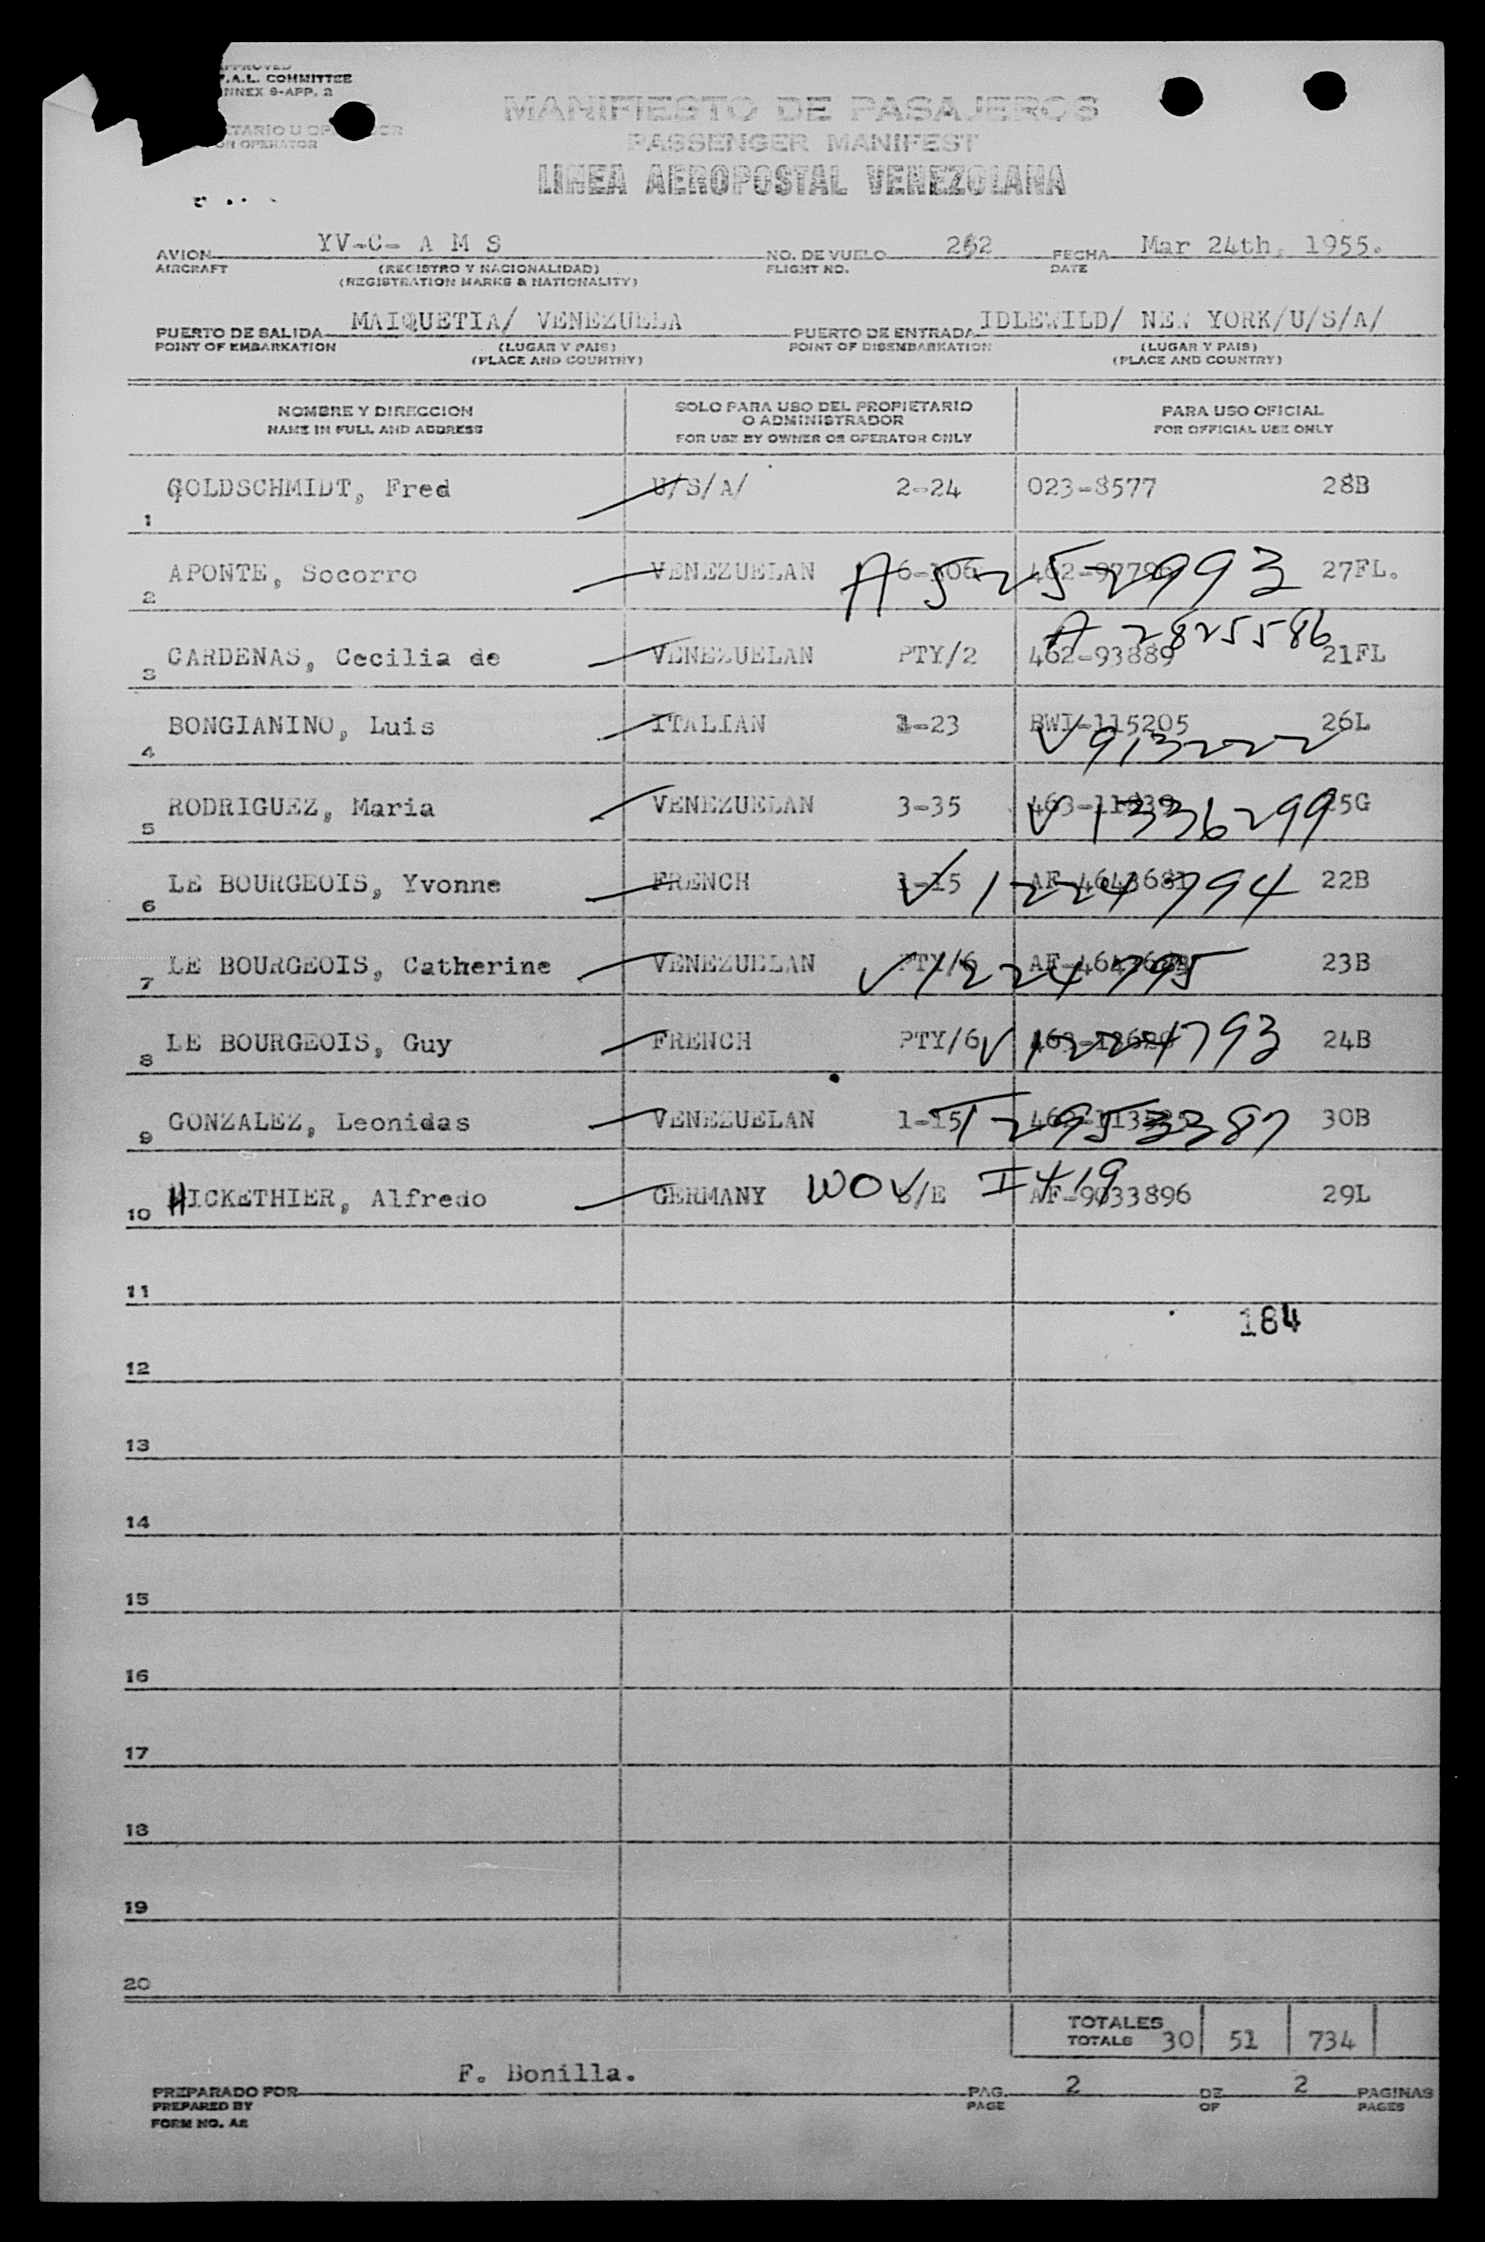 APPROVED
F.A.L. COMMITTEE
ANNEX 9-APP. 2
MANIFIESTO DE PASAJEROS
PASSENGER MANIFEST
LINEA AEROPOSTAL VENEZOLANA
OR OPERATOR
AVION YV-C- A M S NO. DE VUELO 262 FECHA Mar 24th, 1955.
AIRCRAFT (REGISTRO Y NACIONALIDAD) FLIGHT NO. DATE
(REGISTRATION MARKS & NATIONALITY)
PUERTO DE SALIDA MAIQUETIA/ VENEZUELA PUERTO DE ENTRADA IDLEWILD/ NEW YORK/U/S/A/
POINT OF EMBARKATION (LUGAR Y PAIS) POINT OF DISEMBARKATION (LUGAR Y PAIS)
(PLACE AND COUNTRY) (PLACE AND COUNTRY)
NOMBRE Y DIRECCION SOLO PARA USO DEL PROPIETARIO PARA USO OFICIAL
O ADMINISTRADOR
NAME IN FULL AND ADDRESS FOR USE BY OWNER OR OPERATOR ONLY FOR OFFICIAL USE ONLY
1 GOLDSCHMIDT, Fred U/S/A/ 2-24 023-8577 28B
2 APONTE, Socorro VENEZUELAN 6-106 A 5252993 27FL.
A 2825586
3 CARDENAS, Cecilia de VENEZUELAN PTY/2 462-93889 21FL
4 BONGIANINO, Luis ITALIAN 1-23 BWI-115205 26L
V 913222
5 RODRIGUEZ, Maria VENEZUELAN 3-35 V 1336299 25G
6 LE BOURGEOIS, Yvonne FRENCH 1-15 V 1224794 AF-4643681 22B
7 LE BOURGEOIS, Catherine VENEZUELAN PTY/6 V 1224795 23B
8 LE BOURGEOIS, Guy FRENCH PTY/6 V 1224793 24B
9 GONZALEZ, Leonidas VENEZUELAN 1-15 T 2953387 30B
10 HICKETHIER, Alfredo GERMANY WOV /E I 419 AF-9033896 29L
11
184
12
13
14
15
16
17
18
19
20
TOTALES
TOTALS 30 51 734
F. Bonilla.
PREPARADO POR PAG. 2 DE 2 PAGINAS
PREPARED BY PAGE OF PAGES
FORM NO. A2